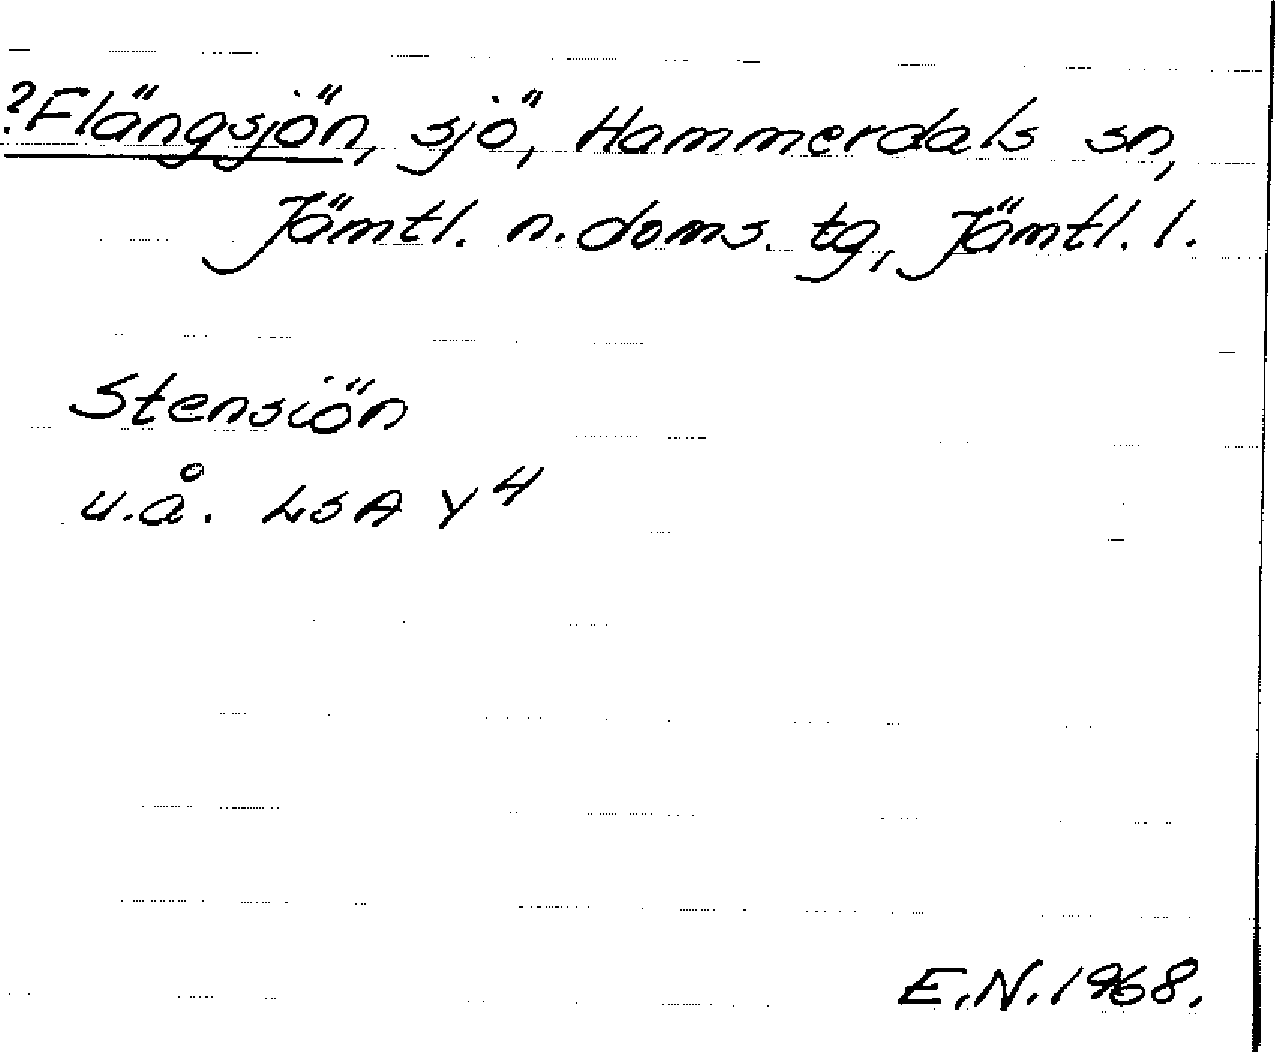 ?Flängsjön, sjö, Hammerdals sn,
Jämtl. n. doms. tg, Jämtl. l.
Stensiön
u.å. LSA Y4
E.N. 1968.